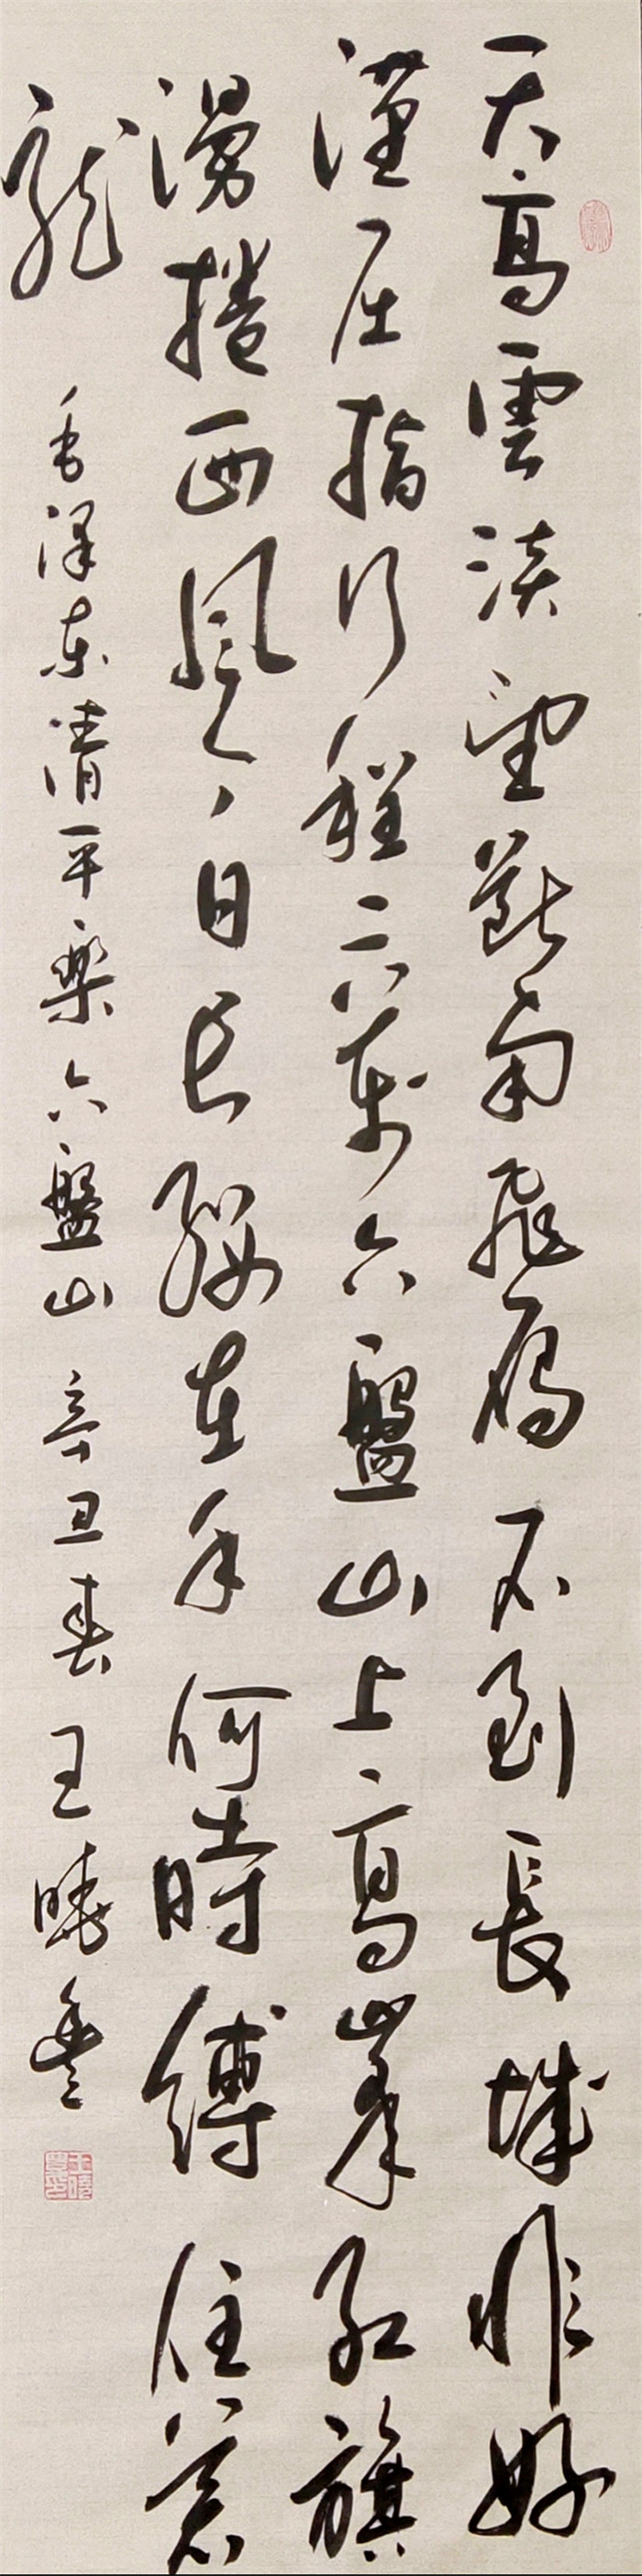 天高雲淡望斷南飛雁不到長城非好
漢屈指行程二萬六盤山上高峯紅旗
漫捲西風今日長纓在手何時縛住蒼
龍
毛澤東清平樂六盤山 辛丑春王曉豐